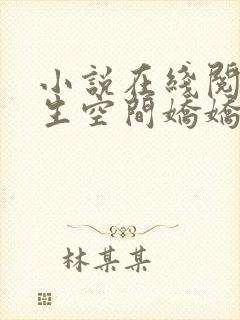 小說在綫閱
生空間嬌嬌
林某某